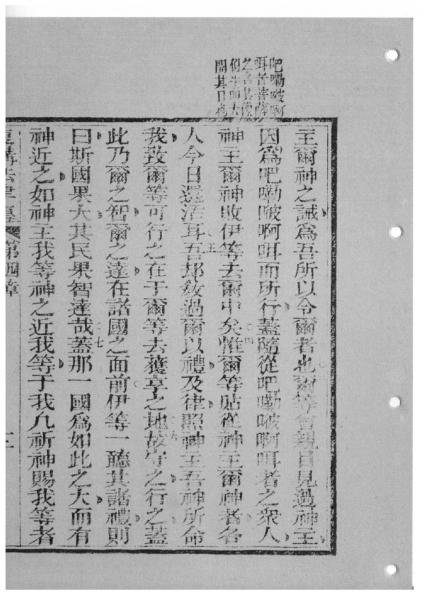 吧嘞啵啊
咡者菩薩
之名其像
主爾神之誡為吾所以令爾者也爾等曾親目見過神主
因為吧嘞啵啊咡而所行蓋隨從吧嘞啵啊咡者之衆人
神主爾神敗伊等去爾中矣惟爾等貼從神主爾神者名
人今日還活耳吾却教過爾以禮及律照神主吾神所命
我致爾等可行之在于爾等去獲享之地故守之行之蓋
此乃爾之智爾之達在諸國之面前伊等一聽其諸禮則
曰斯國果大其民果智達哉蓋那一國為如此之大而有
神近之如神主我等神之近我等于我凡祈神賜我等者
第四章